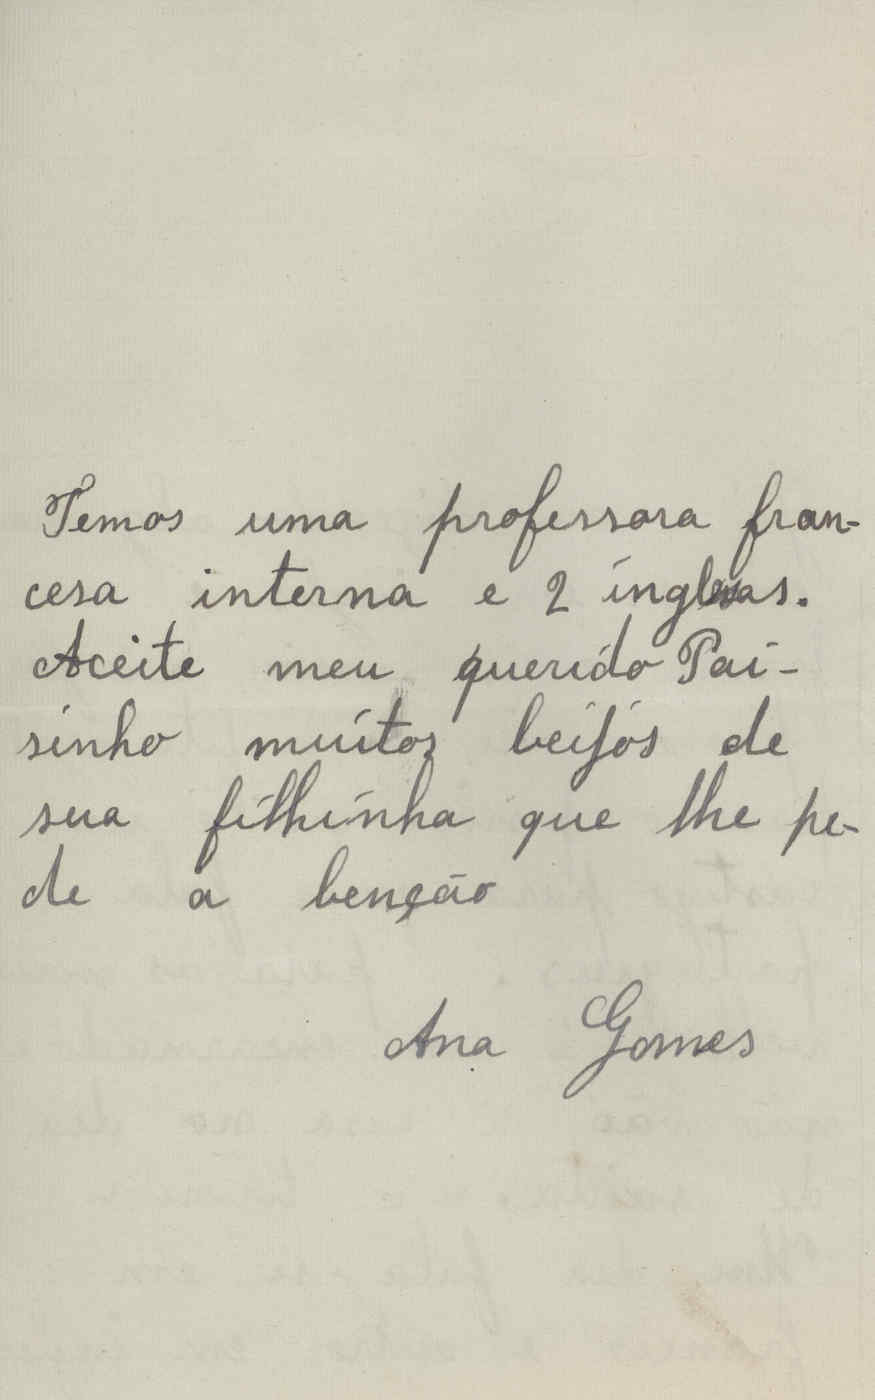 Temos uma professora fran-
cesa interna e 2 inglesas.
Aceite meu querido Pai-
sinho muitos beijos de
sua filhinha que lhe pe-
de a benção
Ana Gomes